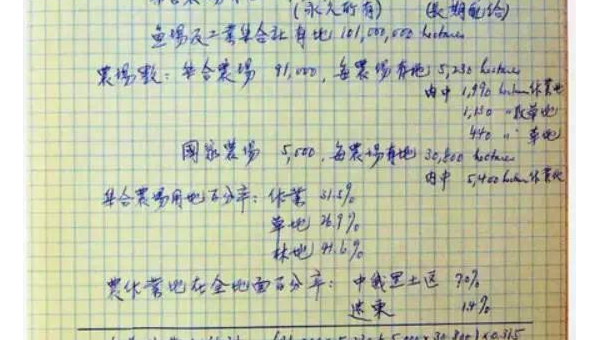 (永久所有) (長期配給)
魚場及工業集合社有地 101,000,000 hectares
農場數：集合農場 91,000, 每農場有地 5,230 hectares
内中 1,990 hectares 作業地
1,150 〃 牧草地
440 〃 草地
國家農場 5,000, 每農場有地 30,800 hectares
内中 5,400 hectares 作業地
集合農場用地百分率：作業 31.5%
草地 26.9%
林地 41.6%
農作業地在全地面百分率：中俄黑土区 70%
遠東 1.4%
5,230 + 5,000 × 30,800) × 0.315